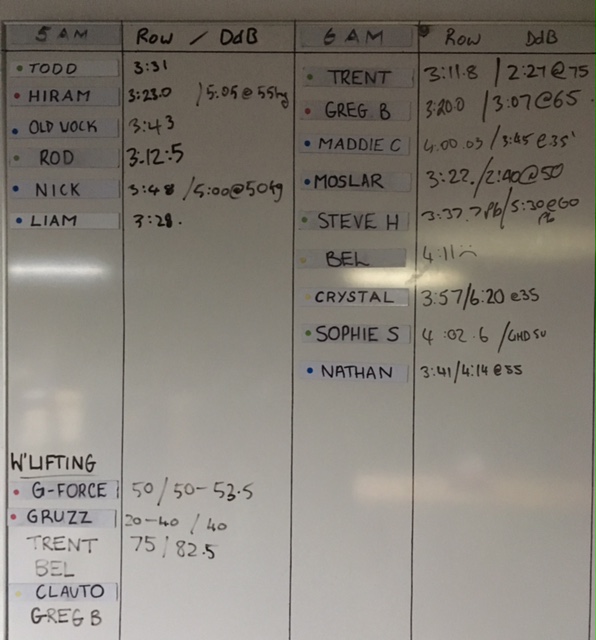 5 AM Row / DdB
TODD 3:31
HIRAM 3:23.0 /5:05 @ 55kg
OLD VOCK 3:43
ROD 3.12:5
NICK 3:48 /5:00@50kg
LIAM 3:28.
W'LIFTING
G-FORCE 50/50-53.5
GRUZZ 20-40 / 40
TRENT 75/82.5
BEL
CLAUTO
GREG B
6 AM Row DdB
TRENT 3:11.8 /2:27@75
GREG B 3:20.0 /3:07@65
MADDIE C 4.00.03/3:45 @35'
MOSLAR 3:22./2:40@50
STEVE H 3:37.7 Pb/5:30@60 Pb
BEL 4:11
CRYSTAL 3:57/6:20 @35
SOPHIE S 4:02.6 /GHDSU
NATHAN 3:41/4:14 @55